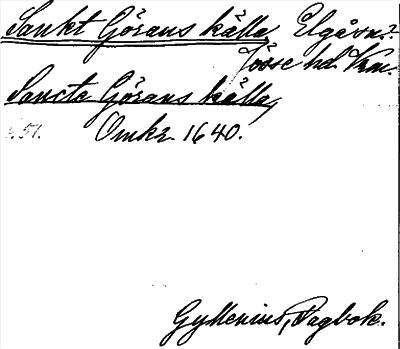 Sankt Görans källa, Elgåsn.?
Jösse hd. Vrm.
Sancte Görans källa,
s. 51. Omkr 1640.
Gyllenius, Dagbok.